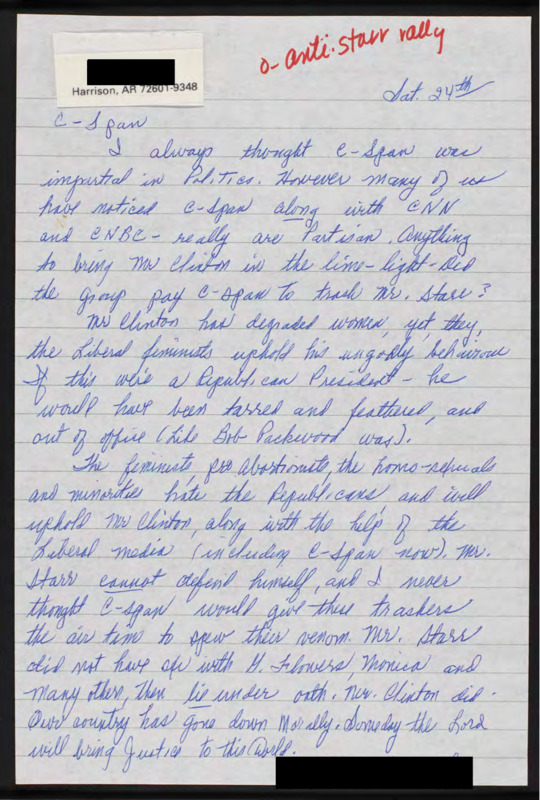 o- anti-starr rally
Harrison, AR 72601-9348
Sat. 24th
C-Span
I always thought C-Span was
impartial in Politics. However many of us
have noticed C-Span along with CNN
and CNBC - really are Partisan. Anything
to bring Mr Clinton in the lime-light - Did
the group pay C-Span to trash Mr. Starr?
Mr Clinton has degraded women, yet, they,
the Liberal feminists uphold his ungodly behaviour
If this were a Republican President - he
would have been tarred and feathered, and
out of office (Like Bob Packwood was).
The feminists, pro abortionists, the homo-sexuals
and minorities hate the Republicans, and will
uphold Mr Clinton, along with the help of the
Liberal media (including C-Span now). Mr.
Starr cannot defend himself, and I never
thought C-Span would give these trashers
the air time to spew their venom. Mr. Starr
did not have with G. Flowers, Monica and
many others, then lie under oath. Mr. Clinton did.
Our country has gone down Morally. Someday the Lord
will bring Justice to this World.